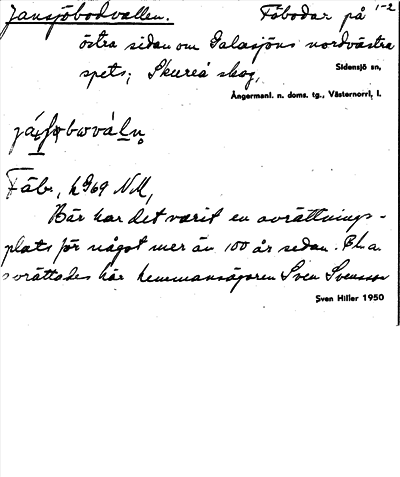 Jansjöbodvallen. Fäbodar på 1-2
östra sidan om Galasjöns nordvästra
spets; Skureå skog,
Sidensjö sn,
Ångermanl. n. doms. tg., Västernorrl. l.
Fäb., k 969 NM,
Här har det varit en avrättnings-
plats för något mer än 100 år sedan. Bl. a.
avrättades här hemmansägaren Sven Svensson
Sven Hiller 1950